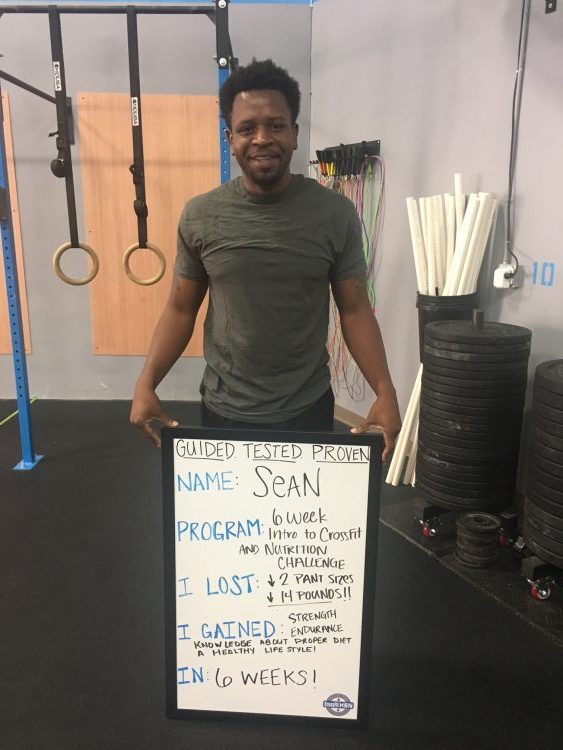 GUIDED. TESTED. PROVEN
NAME: SEAN
PROGRAM: 6 Week
Intro to CrossFit
AND NUTRITION
CHALLENGE
I LOST: ↓ 2 PANT SIZES
↓ 14 POUNDS!!
I GAINED: STRENGTH
ENDURANCE
KNOWLEDGE ABOUT PROPER DIET
A HEALTHY LIFE STYLE!
IN: 6 WEEKS!
10